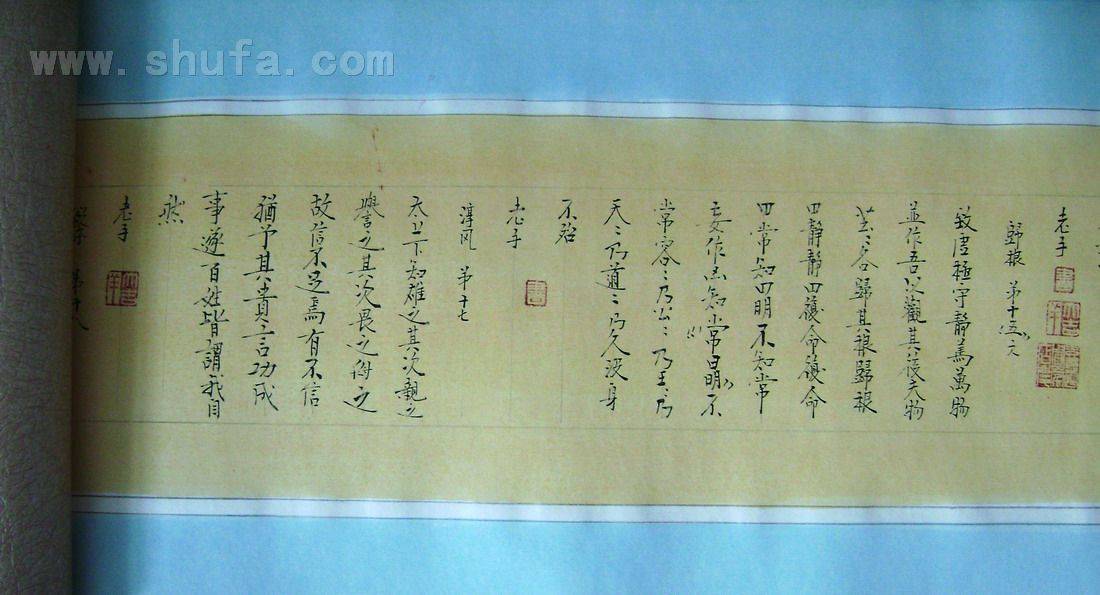 www.shufa.com
老子
歸根 第十五六
致虛極守靜篤萬物
並作吾以觀其復夫物
芸〻各歸其根歸根
曰靜靜曰復命復命
曰常知曰明不知常
妄作凶知常曰明不
常容〻乃公〻乃王〻乃
天〻乃道〻乃久沒身
不殆
老子
淳风 第十七
太上下知雖之其次親之
譽之其次畏之侮之
故信不足焉有不信
猶予其貴言功成
事遂百姓皆謂我自
然
老子
第十八